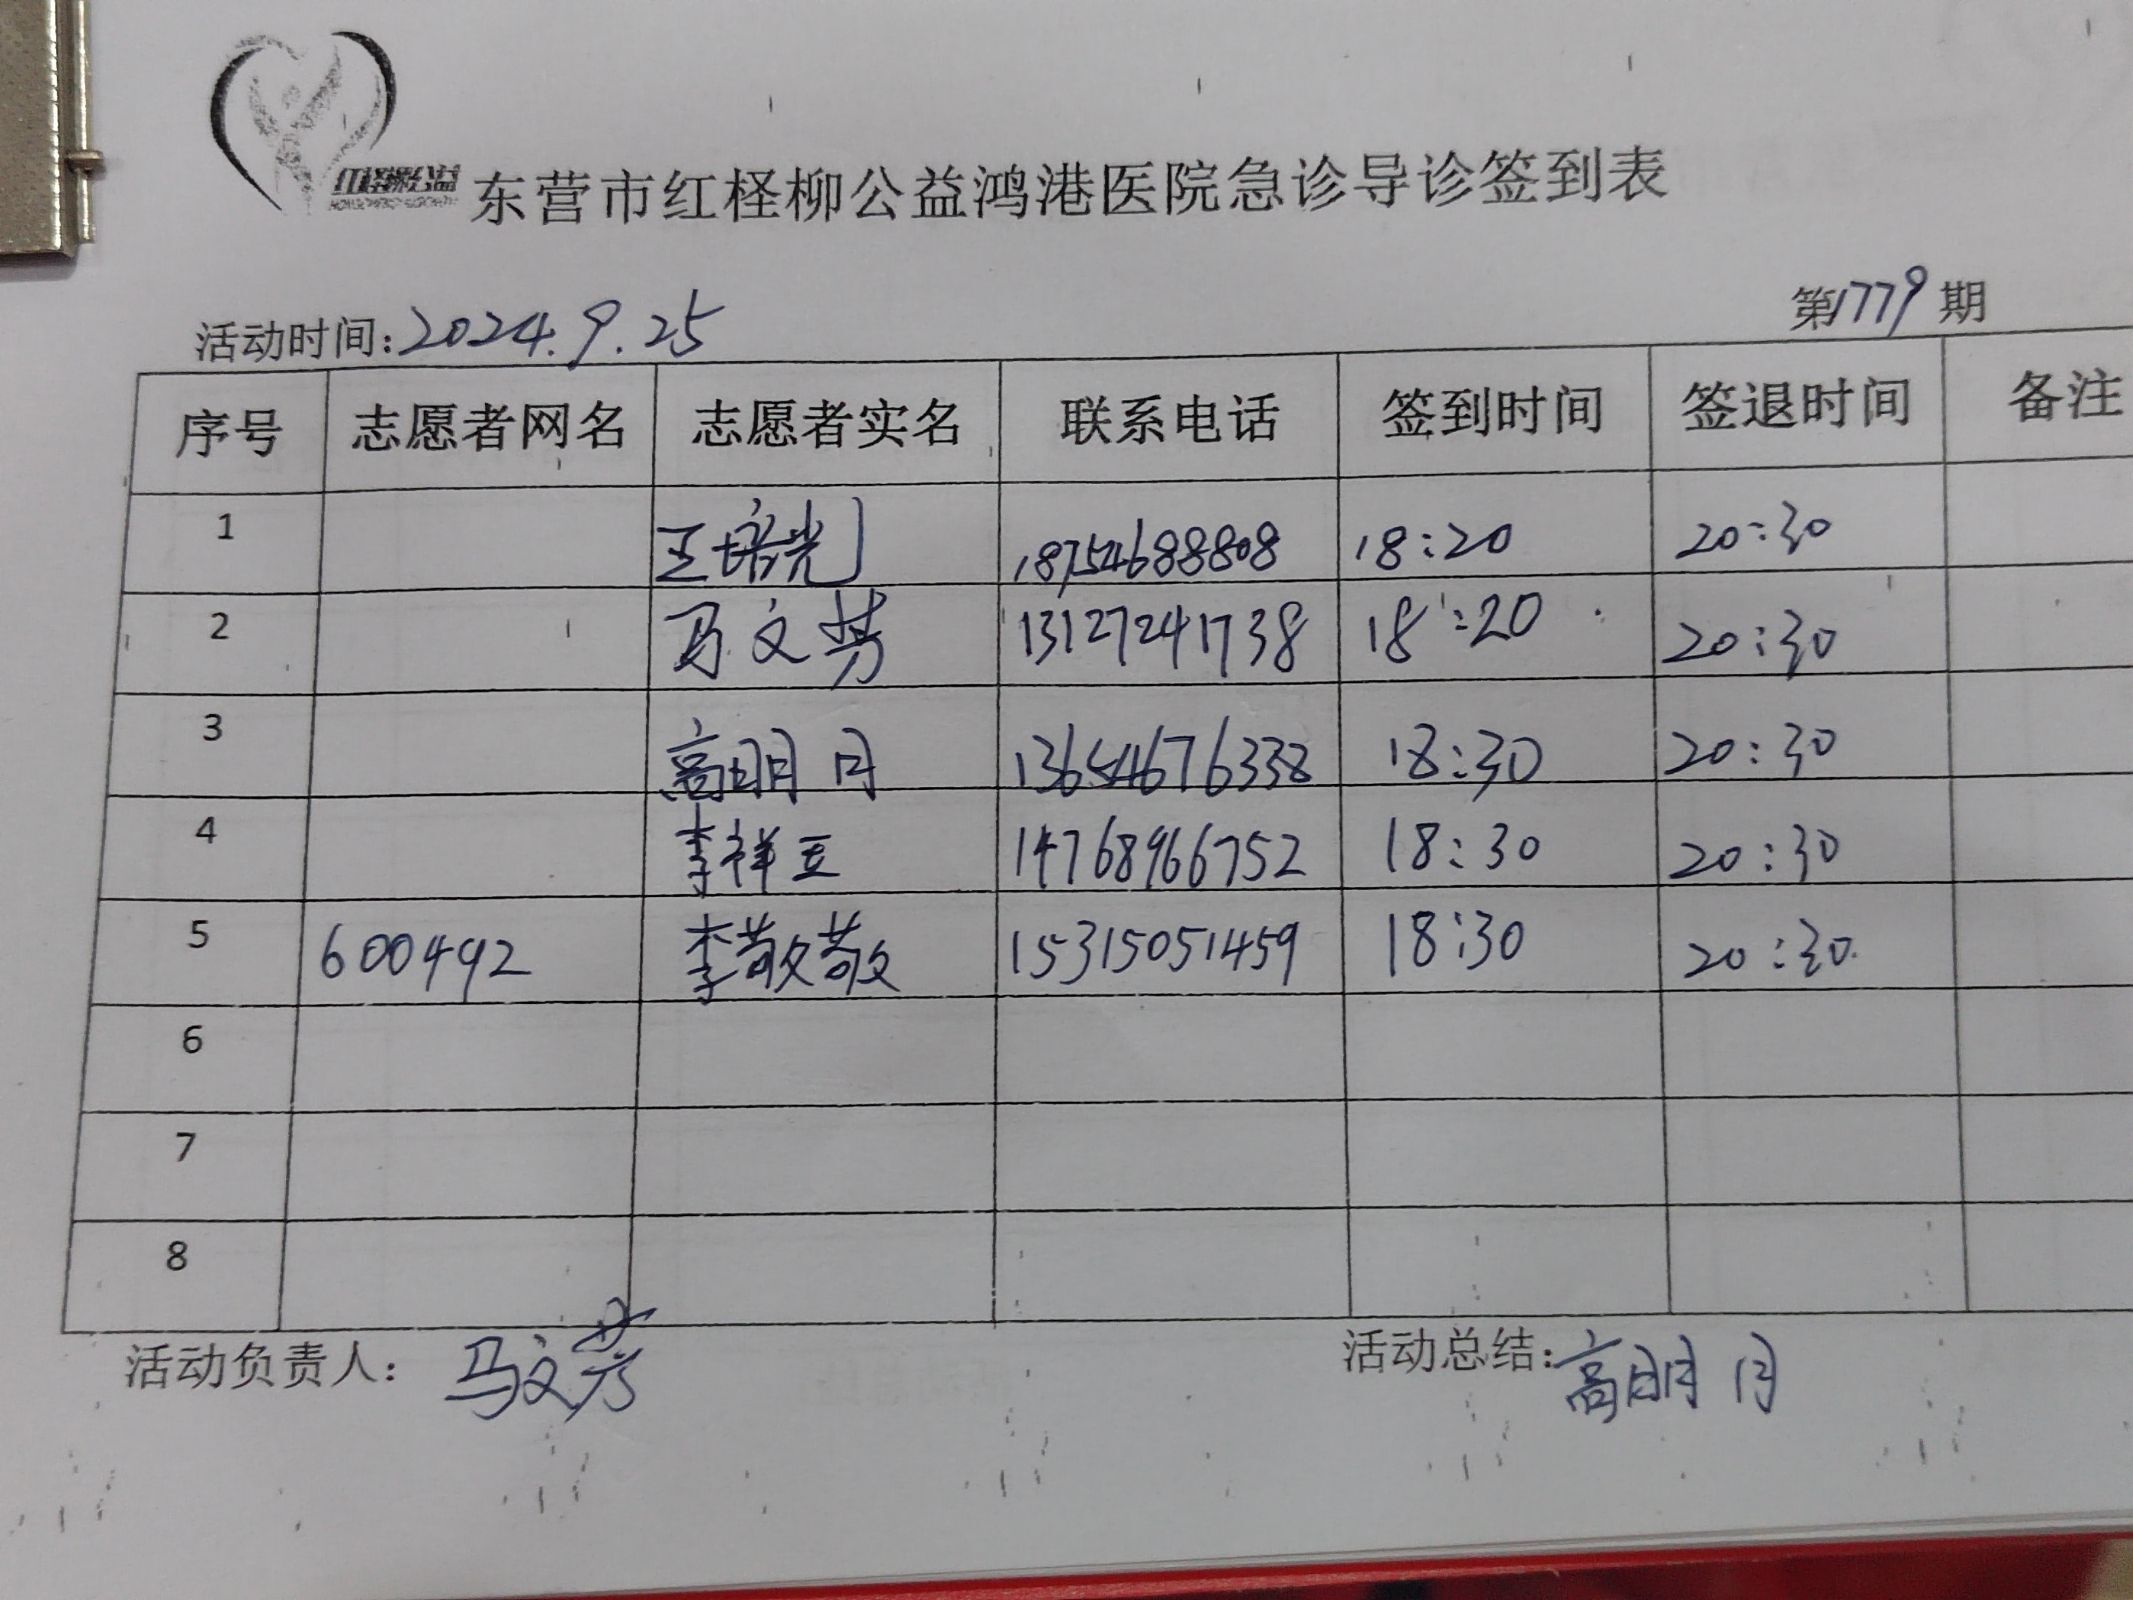 红柽柳公益
东营市红柽柳公益鸿港医院急诊导诊签到表
活动时间:2024.9.25 第1779期
序号 志愿者网名 志愿者实名 联系电话 签到时间 签退时间 备注
1 王培光 18754688808 18:20 20:30
2 马文芳 13127241738 18:20 20:30
3 高明月 13654676338 18:30 20:30
4 李祥玉 14768966752 18:30 20:30
5 600492 李敬敬 15315051459 18:30 20:30
6
7
8
活动负责人: 马文芳 活动总结: 高明月